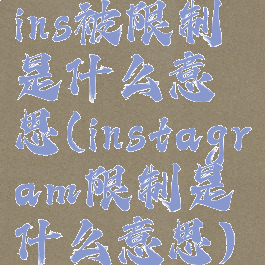 ins被限制
是什么意
思(instagr
am限制是
什么意思)